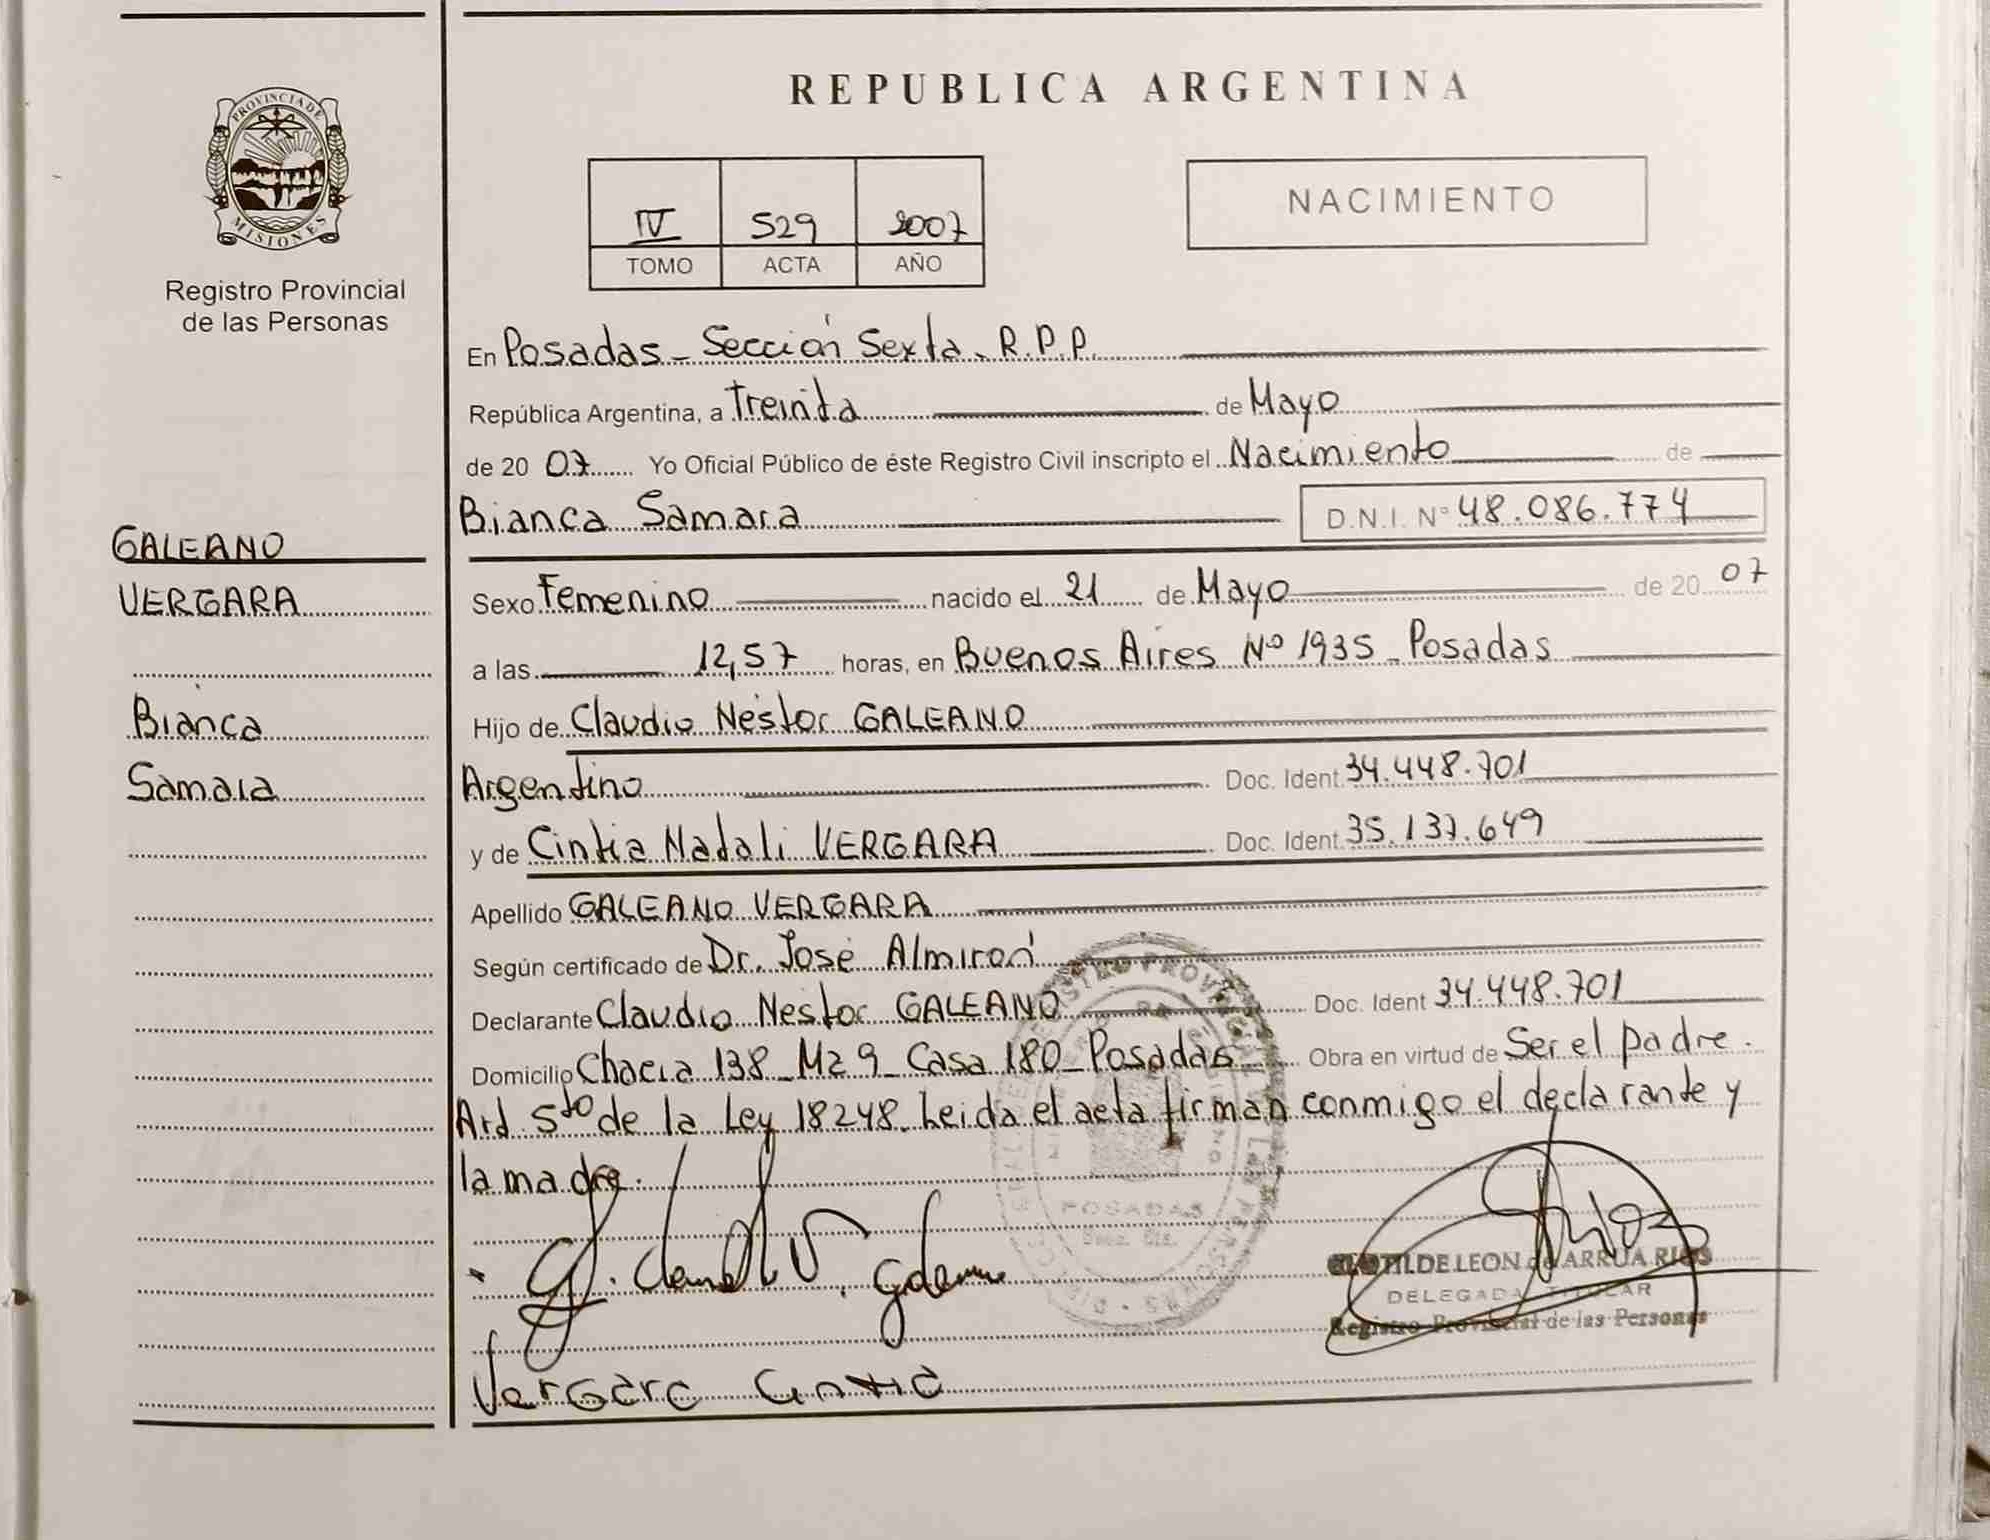 REPUBLICA ARGENTINA
PROVINCIA DE
MISIONES
Registro Provincial
de las Personas
IV 529 2007
TOMO ACTA AÑO
NACIMIENTO
En Posadas - Sección Sexta. R.P.P.
República Argentina, a Treinta de Mayo
de 20 07 Yo Oficial Público de éste Registro Civil inscripto el Nacimiento de
Bianca Samara D.N.I. N° 48.086.774
GALEANO
VERGARA
Bianca
Samara
Sexo Femenino nacido el 21 de Mayo de 20 07
a las 12,57 horas, en Buenos Aires Nº 1935 - Posadas
Hijo de Claudio Nestor GALEANO
Argentino Doc. Ident. 34.448.701
y de Cintia Natali VERGARA Doc. Ident. 35.137.649
Apellido GALEANO VERGARA
Según certificado de Dr. José Almirón
Declarante Claudio Nestor GALEANO Doc. Ident 34.448.701
Domicilio Chacra 138 - Mz 9 - Casa 180 - Posadas Obra en virtud de Ser el padre.
Art. 5to de la Ley 18248. Leida el acta firman conmigo el declarante y
la madre.
POSADAS
DE LEON de ARRUA RIOS
DELEGADA TITULAR
Registro Provincial de las Personas
Vergara Cintia